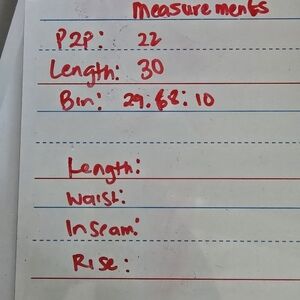 Measurements
P2P: 22
Length: 30
Bin: 29:68:10
Length:
Waist:
Inseam:
Rise: